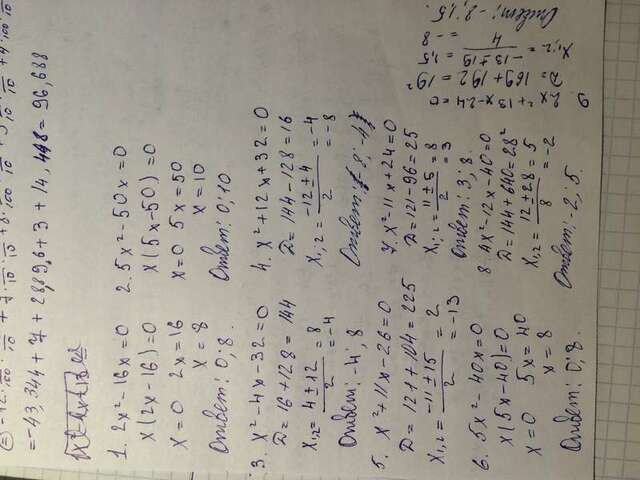 = -43,344 + 7 + 2889,6 + 3 + 14,448 = 96,688
1. 2x² - 16x = 0
x(2x - 16) = 0
x = 0 2x = 16
x = 8
Ответ: 0; 8.
2. 5x² - 50x = 0
x(5x - 50) = 0
x = 0 5x = 50
x = 10
Ответ: 0; 10
3. x² - 4x - 32 = 0
D = 16 + 128 = 144
x₁,₂ = (4 ± 12)/2 = 8
= -4
Ответ: -4; 8
4. x² + 12x + 32 = 0
D = 144 - 128 = 16
x₁,₂ = (-12 ± 4)/2 = -4
= -8
Ответ: -8; -4
5. x² + 11x - 26 = 0
D = 121 + 104 = 225
x₁,₂ = (-11 ± 15)/2 = 2
= -13
6. 5x² - 40x = 0
x(5x - 40) = 0
x = 0 5x = 40
x = 8
Ответ: 0; 8.
7. x² - 11x + 24 = 0
D = 121 - 96 = 25
x₁,₂ = (11 ± 5)/2 = 8
= 3
Ответ: 3; 8.
8. 4x² - 12x - 40 = 0
D = 144 + 640 = 28²
x₁,₂ = (12 ± 28)/8 = 5
= -2
Ответ: -2; 5.
9. 2x² + 13x - 24 = 0
D = 169 + 192 = 19²
x₁,₂ = (-13 ± 19)/4 = 1,5
= -8
Ответ: -8; 1,5.